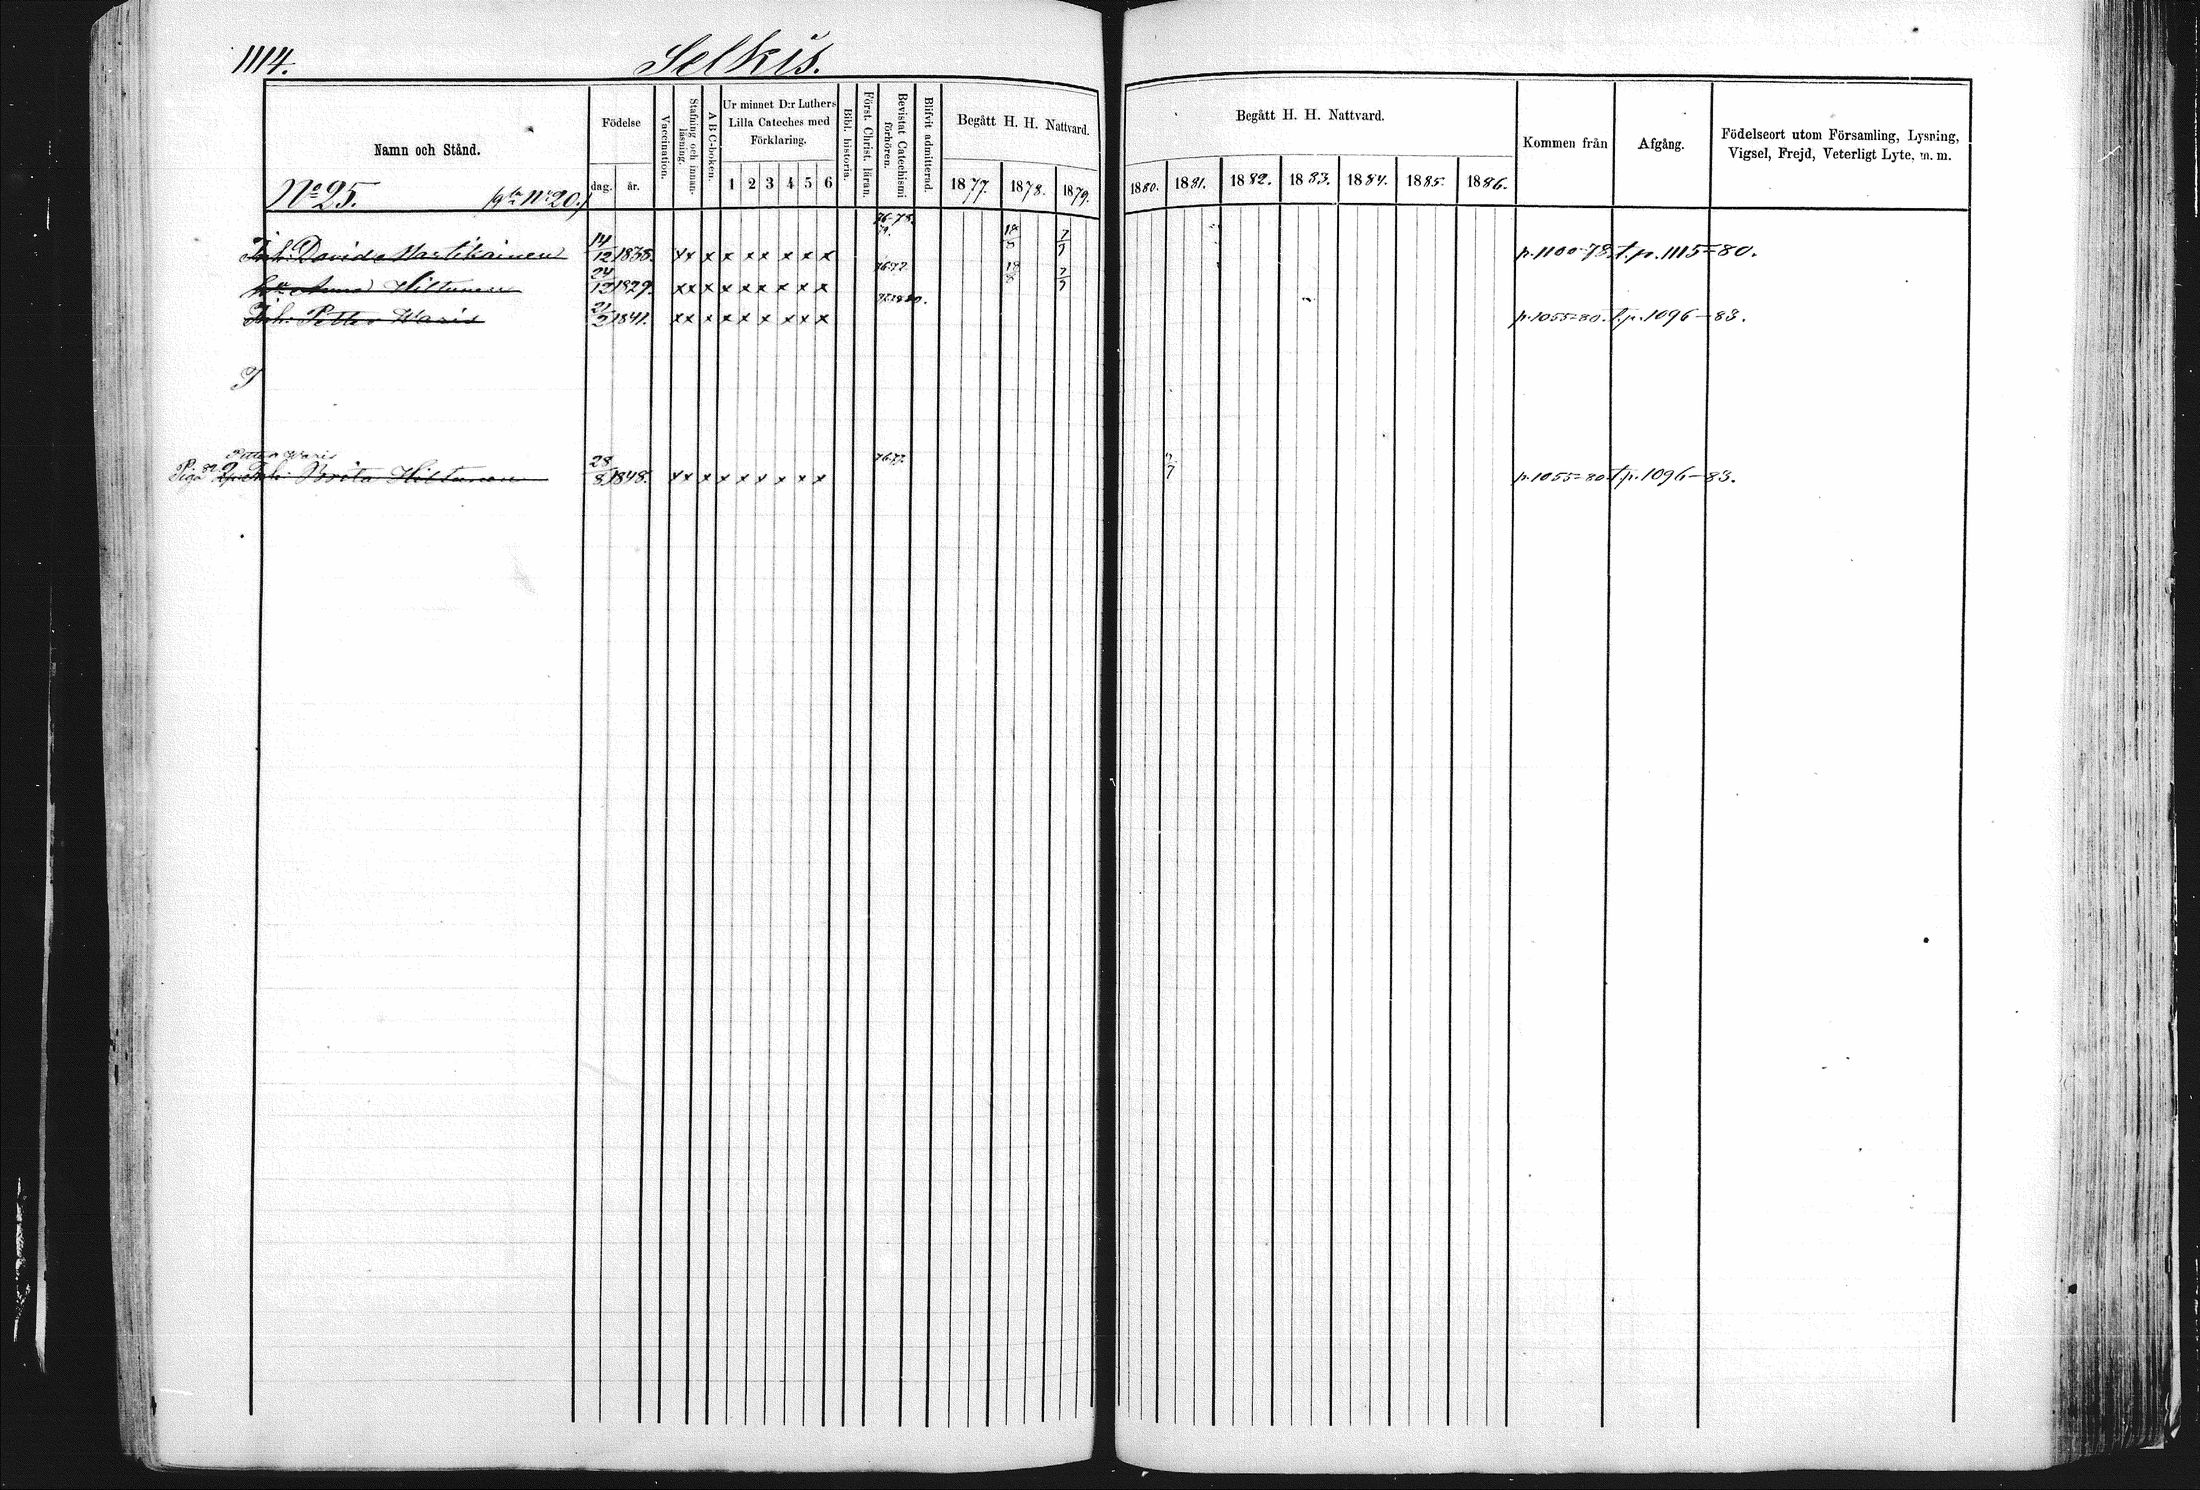 1114. Selkis.
Namn och Stånd. Födelse dag. år. Vaccination. Stafning och innanläsning. A B C-boken. Ur minnet D:r Luthers Lilla Cateches med Förklaring. 1 2 3 4 5 6 Bibl. historia. Först. Christ. läran. Bevistat Catechismi förhören. Blifvit admitterad. Begått H. H. Nattvard. 1877. 1878. 1879.
Begått H. H. Nattvard. 1880. 1881. 1882. 1883. 1884. 1885. 1886. Kommen från Afgång. Födelseort utom Församling, Lysning, Vigsel, Frejd, Veterligt Lyte, m. m.
No 25. No 20.
76-78.
Inh. David Martikainen 14/12 1838. x x x x x x x x x 18/8 7/7 p. 1100-78. t. p. 1115-80.
76-77.
Anna Hiltunen 24/12 1829. x x x x x x x x x 18/8 7/7
Inh. Petter Waris 21/2 1841. x x x x x x x x x p. 1055-80. t. p. 1096-83.
Petter Waris
76-77.
Piga Brita Hiltunen 28/8 1848. x x x x x x x x x p. 1055-80 t. p. 1096-83.